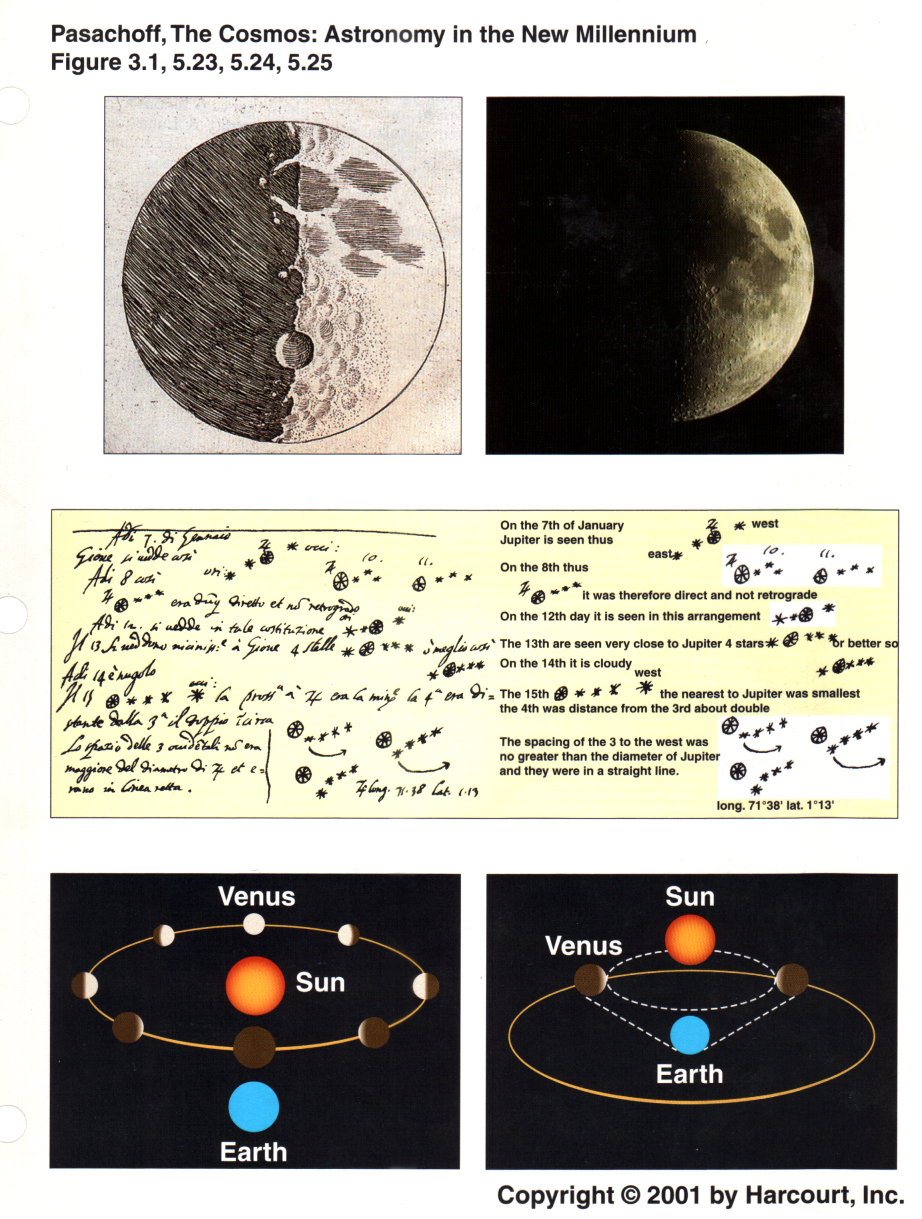 Pasachoff, The Cosmos: Astronomy in the New Millennium
Figure 3.1, 5.23, 5.24, 5.25
Adi 7. di Gennaio
Gioue si uedde cosi
Adi 8 cosi
10.
11.
era dūq̃ diretto et nō retrogrado
Adi 12. si uedde in tale costituzione
Il 13 si ueddono à Gioue 4 stelle
ò meglio cosi
Adi 14 è nugolo
Il 15
la 4ª era di=
stante dalla 3ª il doppio
Lo spazio delle 3 nō era
maggiore del diametro di ♃ et e=
rano in linea retta.
♃ long. 71.38 lat. 1.13
On the 7th of January
Jupiter is seen thus
west
east
On the 8th thus
10.
11.
it was therefore direct and not retrograde
On the 12th day it is seen in this arrangement
The 13th are seen very close to Jupiter 4 stars
or better so
On the 14th it is cloudy
west
The 15th
the nearest to Jupiter was smallest
the 4th was distance from the 3rd about double
The spacing of the 3 to the west was
no greater than the diameter of Jupiter
and they were in a straight line.
long. 71°38' lat. 1°13'
Venus
Sun
Earth
Sun
Venus
Earth
Copyright © 2001 by Harcourt, Inc.